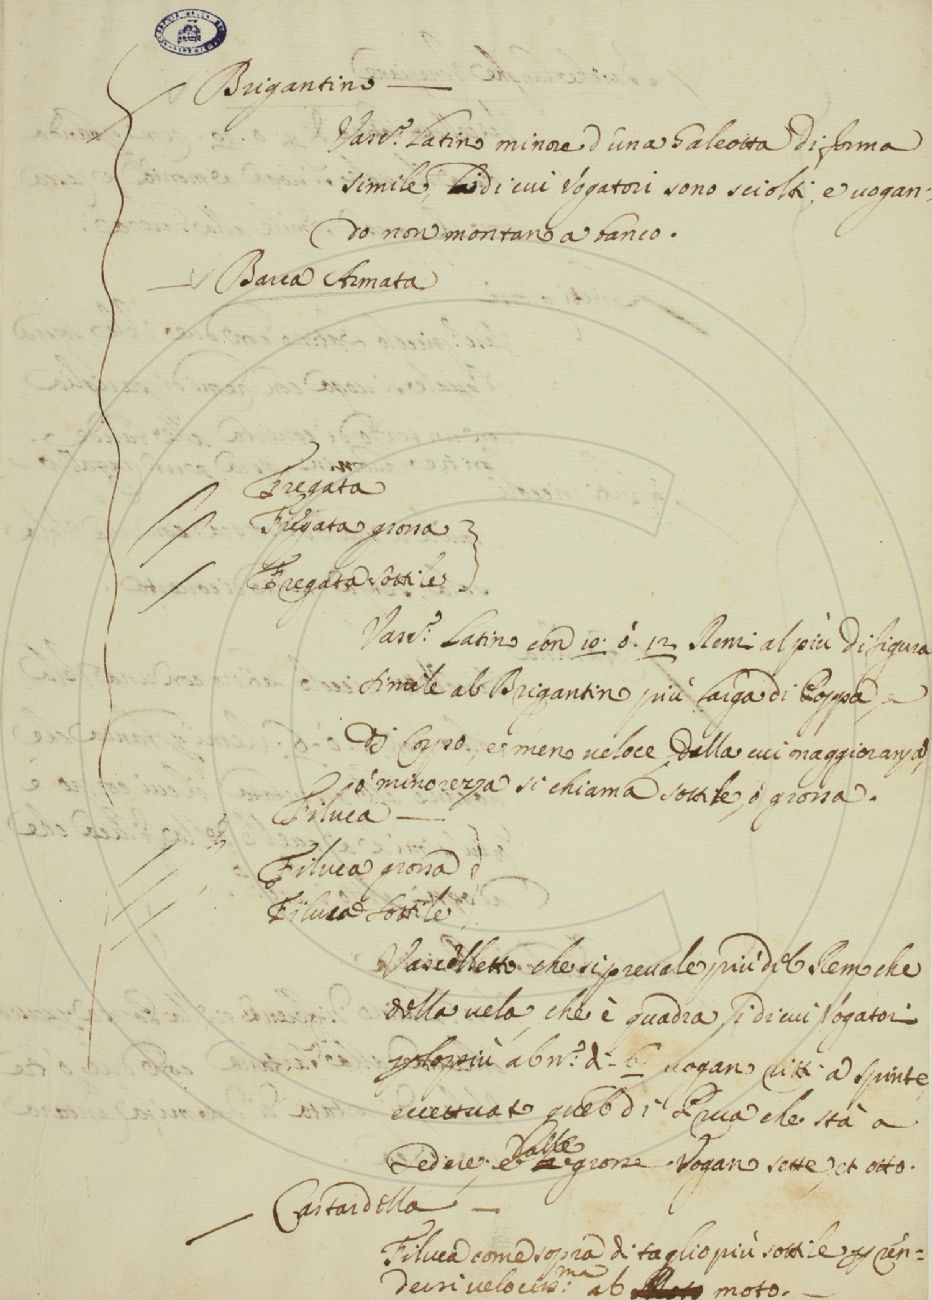 Brigantino —
Vasc.º Latino minore d'una Galeotta di forma
simile, li di cui Vogatori sono sciolti, e uogan-
do non montano a banco.
Barca Armata
Fregata
Fregata grossa
Fregata sottile
Vasc.º Latino con 10. ò. 12 Remi al più di figura
simile al Brigantino più larga di Poppa, e
di Corpo, e meno veloce, dalla cui maggioranza,
ò minorezza si chiama sottile, ò grossa.
Filuca —
Filuca grossa
Filuca sottile
Vascelletto che si preuale più del Remo che
della uela, che è quadra, li di cui Vogatori
per lo più al n.º di 6. uogano ritti a spinte,
eccettuato quel di Prua che stà a
sedere, e dalle grosse Vogano sette, et otto.
Castardella —
Filuca come sopra di taglio più sottile per ren-
dersi velociss.ma al moto. —